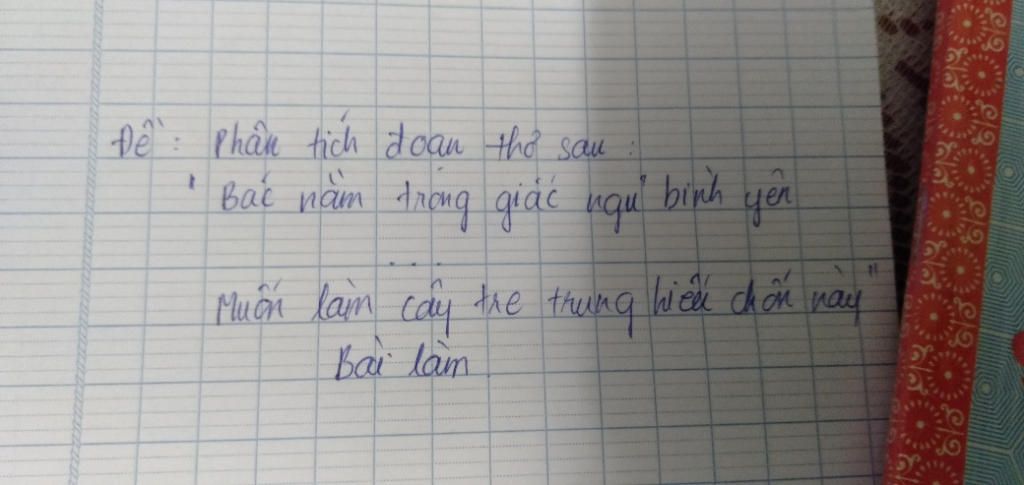 Đề: Phân tích đoạn thơ sau:
"Bác nằm trong giấc ngủ bình yên
...
Muốn làm cây tre trung hiếu chốn này"
Bài làm